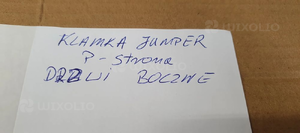 KLAMKA JUMPER
P - strona
DRZWI BOCZNE